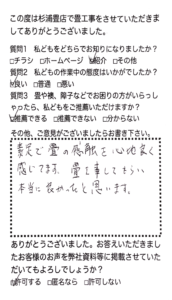 この度は杉浦畳店で畳工事をさせていただきま
してありがとうございました。
質問1 私どもをどちらでお知りになりましたか？
□チラシ □ホームページ □紹介 □その他
質問2 私どもの作業中の態度はいかがでしたか？
□良い □普通 □悪い
質問3 畳や襖、障子などでお困りの方がいらっし
ゃったら、私どもをご推薦いただけますか？
□推薦できる □推薦できない □分からない
その他、ご意見がございましたらお書き下さい。
素足で畳の感触を心地良く
感じてます。畳工事してもらい
本当に良かったと思います。
ありがとうございました。お答えいただきまし
たお客様のお声を弊社資料等に掲載させていた
だいてもよろしでしょうか？
□許可する □匿名なら □許可しない